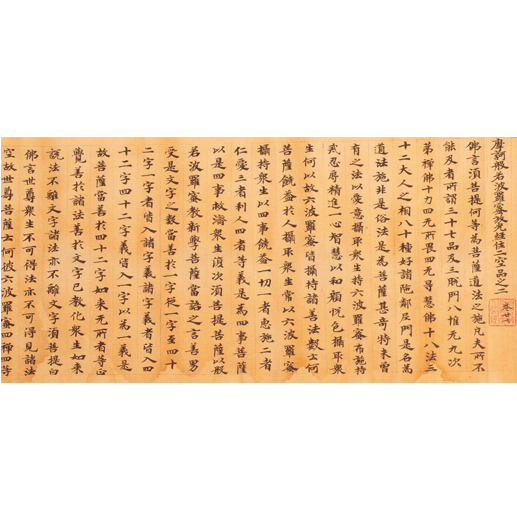 摩訶般若波羅蜜放光經住二空品之二 卷廿七
佛言須菩提何等為菩薩道法之施凡夫所不
能及者所謂三十七品及三脫門八惟无九次
第禪佛十力四无所畏四无导慧佛十八法三
十二大人之相八十種好諸陁鄰尼門是名為
道法施非是俗法是為菩薩甚奇特未曾
有之法以愛意攝取衆生持六波羅蜜布施持
戒忍辱精進一心智慧以和顏悅色攝取衆
生何以故六波羅蜜皆攝持諸善法數云何
菩薩饒益於人攝取衆生常以六波羅蜜
攝持衆生以四事饒益一切一者惠施二者
仁愛三者利人四者等義是為四事菩薩
以是四事救濟衆生復次須菩提菩薩以般
若波羅蜜教新學菩薩當語之言善男
受是文字之數當善於一字從一字至四十
二字一字者皆入諸字義諸字義者皆四
十二字四十二字義皆入一字以為一義是
故菩薩當善於四十二字如来无所著等正
覺善於諸法善於文字已教化衆生如来
說法不離文字諸法亦不離文字須菩提白
佛言世尊衆生不可得法亦不可得見諸法
空故世尊菩薩云何彼六波羅蜜四禪四等